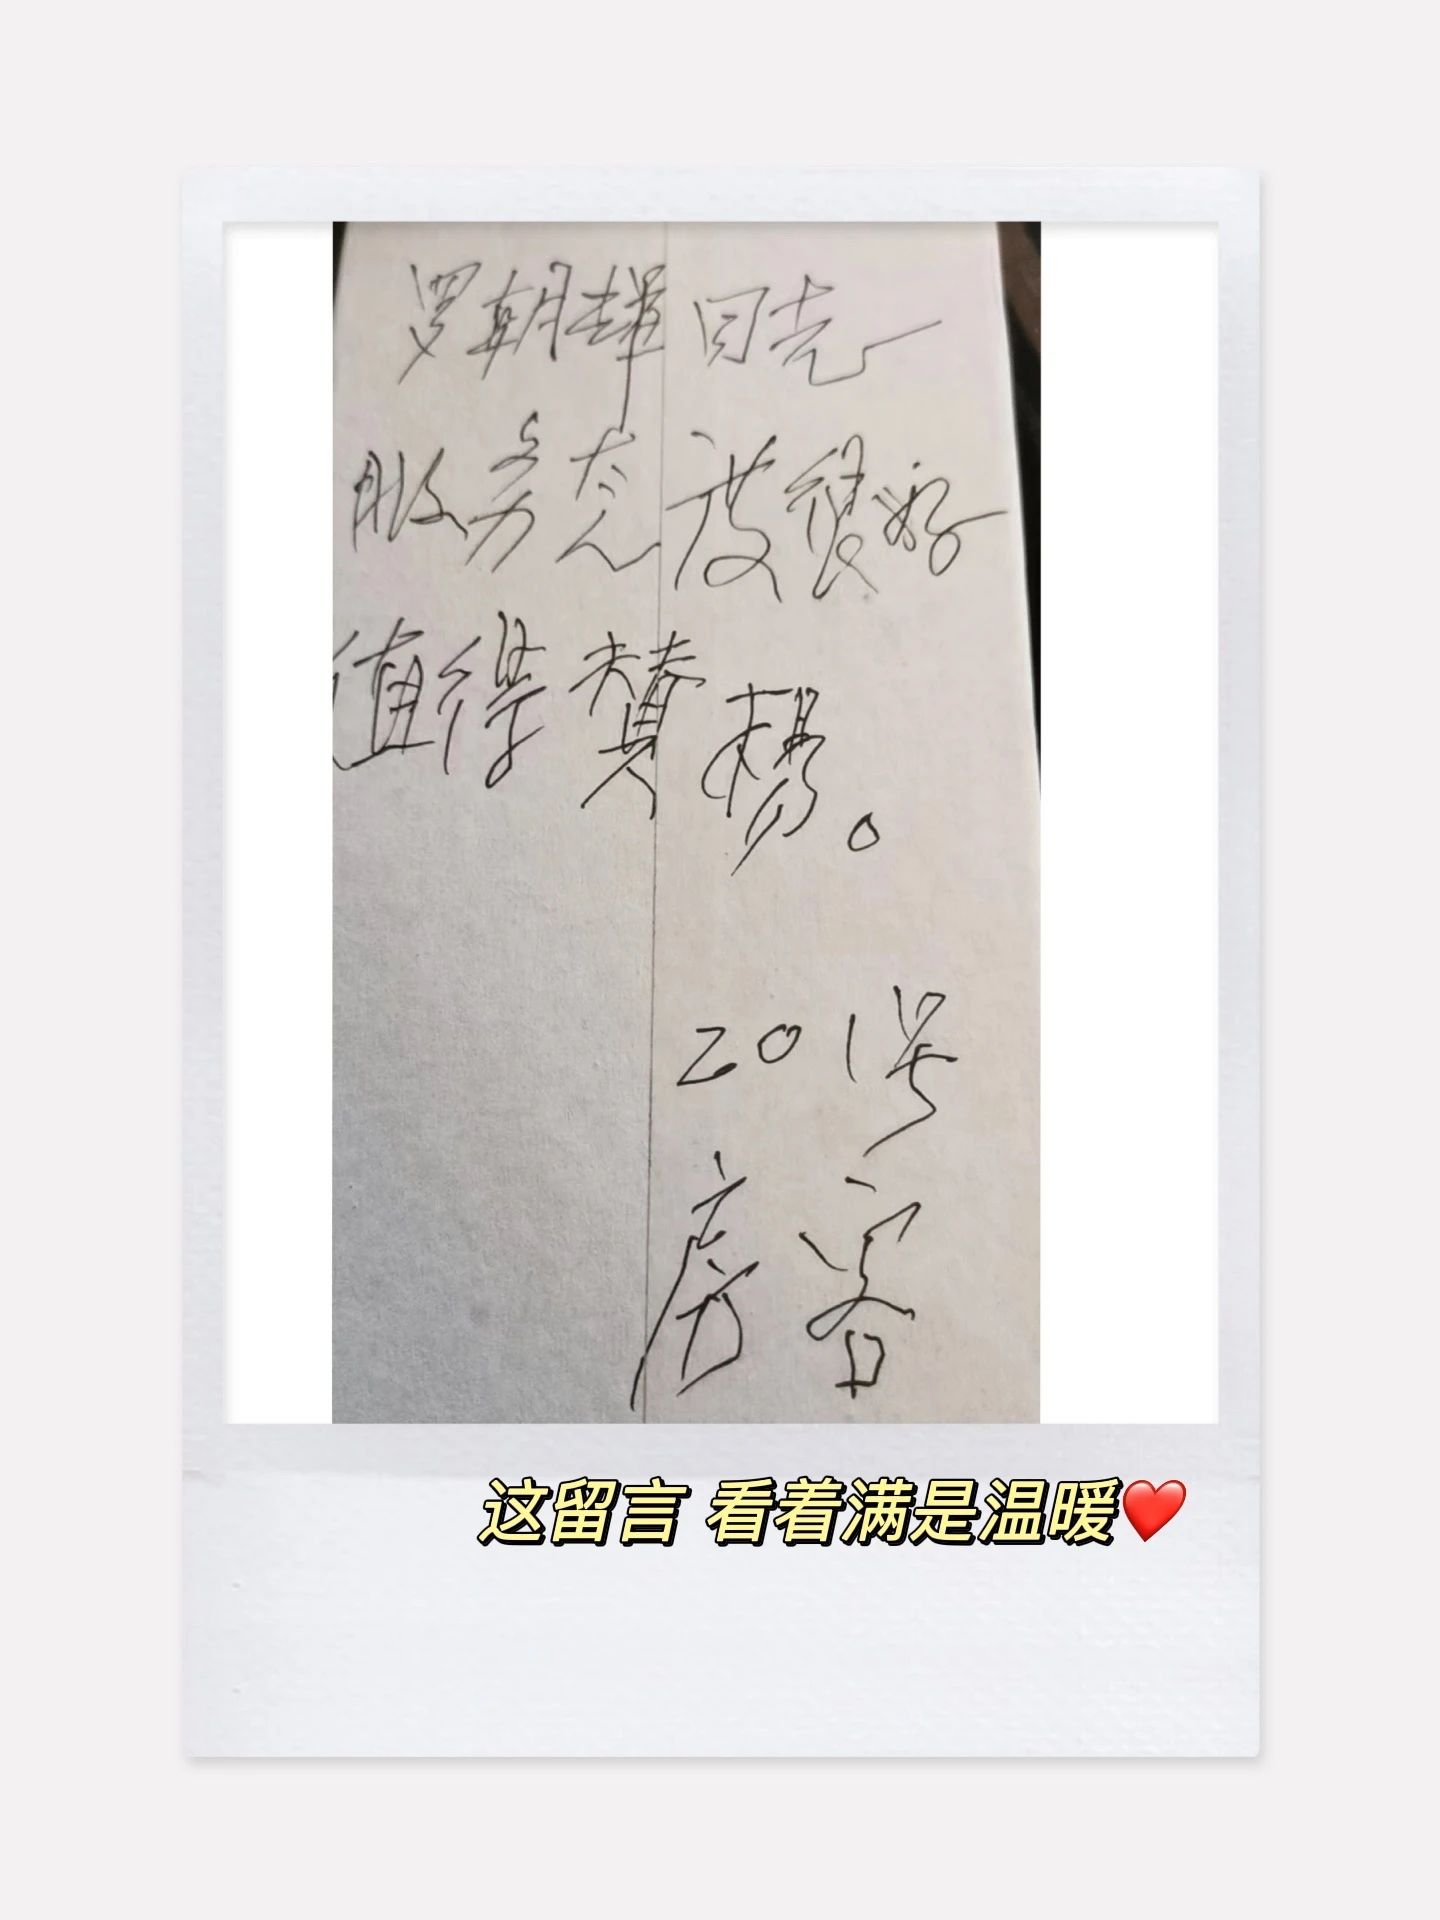 罗朝辉同志
服务态度很好
值得赞扬。
201号
房客
这留言 看着满是温暖❤️